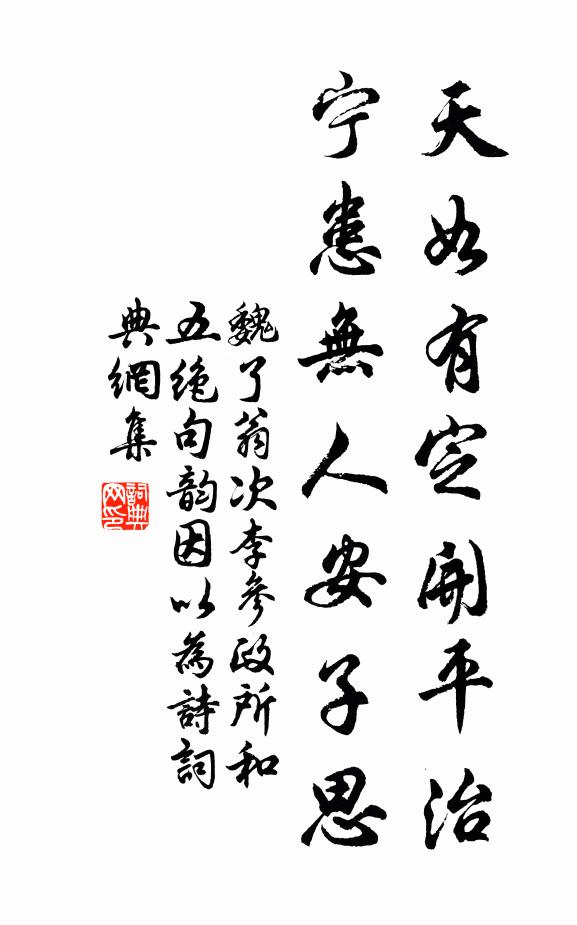 天如有定開平治
宁患無人安子思
魏了翁次李參政所和
五绝句韵因以為詩詞
典網集
詞典網印